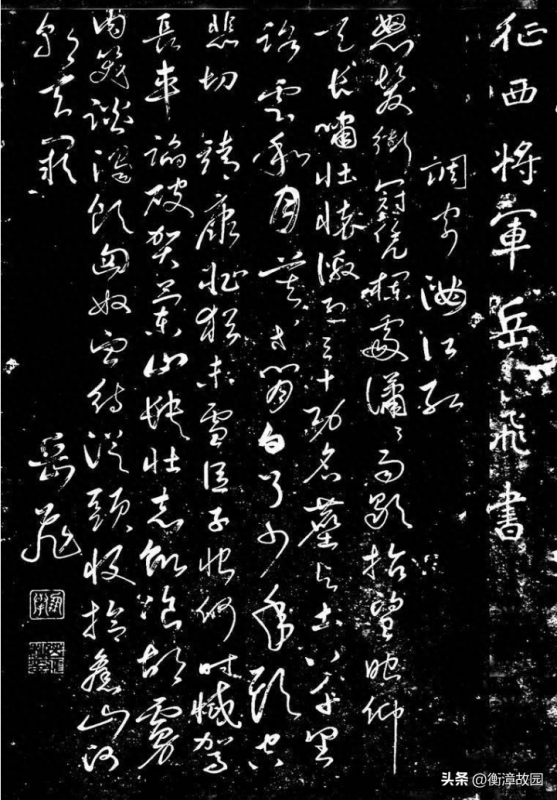 征西將軍岳飛書
調寄滿江紅
怒髮衝冠凭欄處瀟瀟雨歇抬望眼仰
天長嘯壯懷激烈三十功名塵與土八千里
路雲和月莫等閒白了少年頭空
悲切靖康恥猶未雪臣子恨何時滅駕
長車踏破賀蘭山缺壯志飢餐胡虜
肉笑談渴飲匈奴血待從頭收拾舊山河
朝天闕
岳飛
头条 @衡漳故园